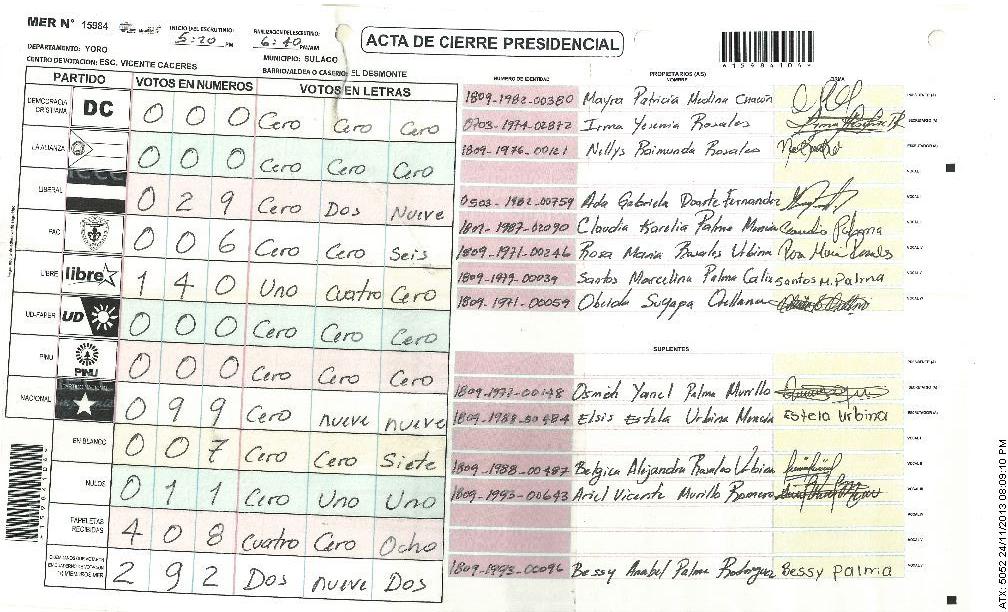 MER N° 15984
INICIO DEL ESCRUTINIO: 5:20 PM
FINALIZACIÓN DEL ESCRUTINIO: 6:40 PM/AM
ACTA DE CIERRE PRESIDENCIAL
DEPARTAMENTO: YORO
MUNICIPIO: SULACO
CENTRO DE VOTACION: ESC. VICENTE CACERES
BARRIO/ALDEA O CASERIO: EL DESMONTE
PARTIDO VOTOS EN NUMEROS VOTOS EN LETRAS
DEMOCRACIA CRISTIANA DC 0 0 0 Cero Cero Cero
LA ALIANZA 0 0 0 Cero Cero Cero
LIBERAL 0 2 9 Cero Dos Nueve
PAC 0 0 6 Cero Cero Seis
LIBRE libre 1 4 0 Uno Cuatro Cero
UD-FAPER UD 0 0 0 Cero Cero Cero
PINU PINU 0 0 0 Cero Cero Cero
NACIONAL 0 9 9 Cero nueve nueve
EN BLANCO 0 0 7 Cero Cero Siete
NULOS 0 1 1 Cero Uno Uno
PAPELETAS RECIBIDAS 4 0 8 Cuatro Cero Ocho
2 9 2 Dos nueve Dos
NUMERO DE IDENTIDAD PROPIETARIOS (AS) NOMBRE FIRMA
1809-1982-00380 Mayra Patricia Medina Chacón PRESIDENTE (A)
0703-1974-02872 Irma Yesenia Rosales SECRETARIO (A)
1809-1976-00121 Nillys Raimunda Rosales ESCRUTADOR (A)
VOCAL I
0503-1982-00759 Ada Gabriela Duarte Fernandez
1807-1987-02090 Claudia Karelia Palma Murcia Claudia Palma
1809-1971-00246 Rosa Maria Rosales Urbina Rosa Maria Rosales
1809-1979-00039 Santos Marcelina Palma Calix Santos M. Palma
1809-1971-00059 Obeida Suyapa Orellana
SUPLENTES
PRESIDENTE (A)
1809-1972-00148 Osmeh Yanel Palma Murillo SECRETARIO (A)
1809-1988-00484 Elsis Estela Urbina Murcia Estela Urbina ESCRUTADOR (A)
VOCAL I
1809-1988-00487 Belgica Alejandra Rosales Urbina
1809-1993-00643 Ariel Vicente Murillo Romero
1809-1993-00096 Bessy Anabel Palma Rodriguez Bessy Palma
ATX: 5052 24/11/2013 08:09:10 PM